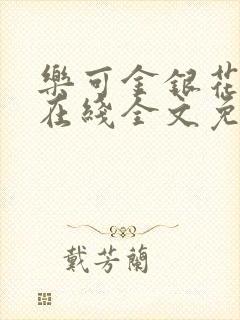 樂可金銀花
在綫全文免
戴芳蘭